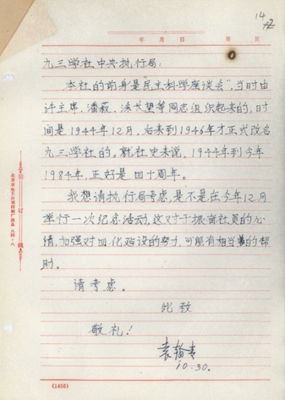 14
年 月 日 第 页
九三学社中央执行局：
本社的前身是"民主科学座谈会"，当时由
许主席、潘菽、涂长望等同志组织起来的，时
间是1944年12月，后来到1946年才正式改名
九三学社的，就社史来说，1944年到今年
1984年，正好是四十周年。
我想请执行局考虑，是不是在今年12月
举行一次纪念活动，这对于振奋社员的心
情，加强对四化建设的努力，可能有相当的帮
助。
请考虑。
此致
敬礼！
袁翰青
10.30.
(1456)